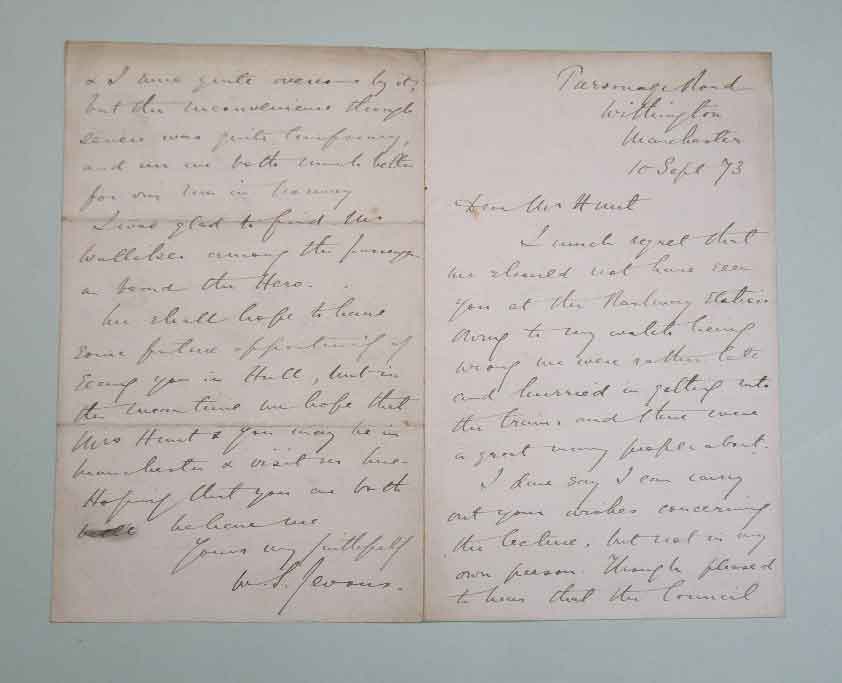 Parsonage Road
Withington
Manchester
10 Sept 73
Dear Mr Hunt
I much regret that
we should not have seen
you at the Railway Station
Owing to my watch being
wrong we were rather late
and hurried in getting into
the train, and there were
a great many people about.
I dare say I can carry
out your wishes concerning
the lecture, but not in my
own person. Though pleased
to hear that the Council
& I were quite overcome by it;
but the inconvenience though
severe was quite temporary,
and we are both much better
for our run in Norway
I was glad to find
among the passengers
on board the Hero.
We shall hope to have
some future opportunity of
seeing you in Hull, but in
the mean time we hope that
Mrs Hunt & you may be in
Manchester & visit us here.
Hoping that you are both
well believe me
Yours very faithfully
W. S. Jevons.